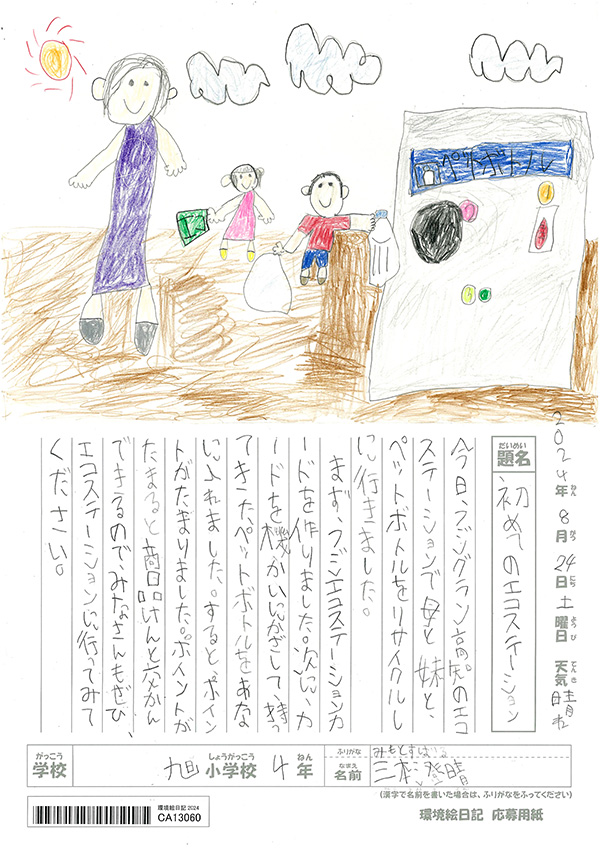 ペットボトル
2024年 8月 24日 土曜日 天気 晴れ
ねん がつ にち ようび てんき
だいめい
題名
初めてのエコステーション
今日、フジグラン高知のエコ
ステーションで母と妹と、
ペットボトルをリサイクルし
に行きました。
まず、フジエコステーションカ
ードを作りました。次に、カ
ードを機かいにかざして、持っ
てきた、ペットボトルをあな
に入れました。するとポイン
トがたまりました。ポイントが
たまると商品けんと交かん
できるので、みなさんもぜひ、
エコステーションに行ってみて
ください。
がっこう しょうがっこう ねん
学校 旭小学校 4年
ふりがな
なまえ
名前 三本
(漢字で名前を書いた場合は、ふりがなをふってください)
環境絵日記 2024
CA13060
環境絵日記 応募用紙